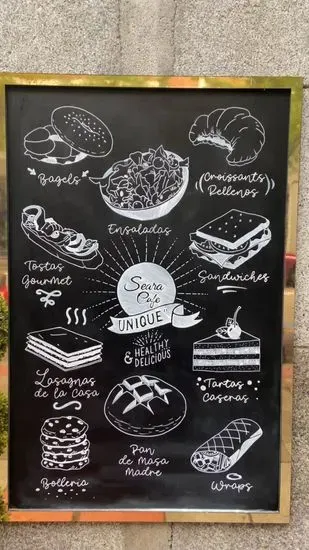 Bagels
Ensaladas
(Croissants
Rellenos)
Tostas
Gourmet
Sandwiches
Seara
Cafe
UNIQUE
& HEALTHY
DELICIOUS
Lasagnas
de la Casa
Tartas
Caseras
Bolleria
Pan
de Masa
Madre
Wraps